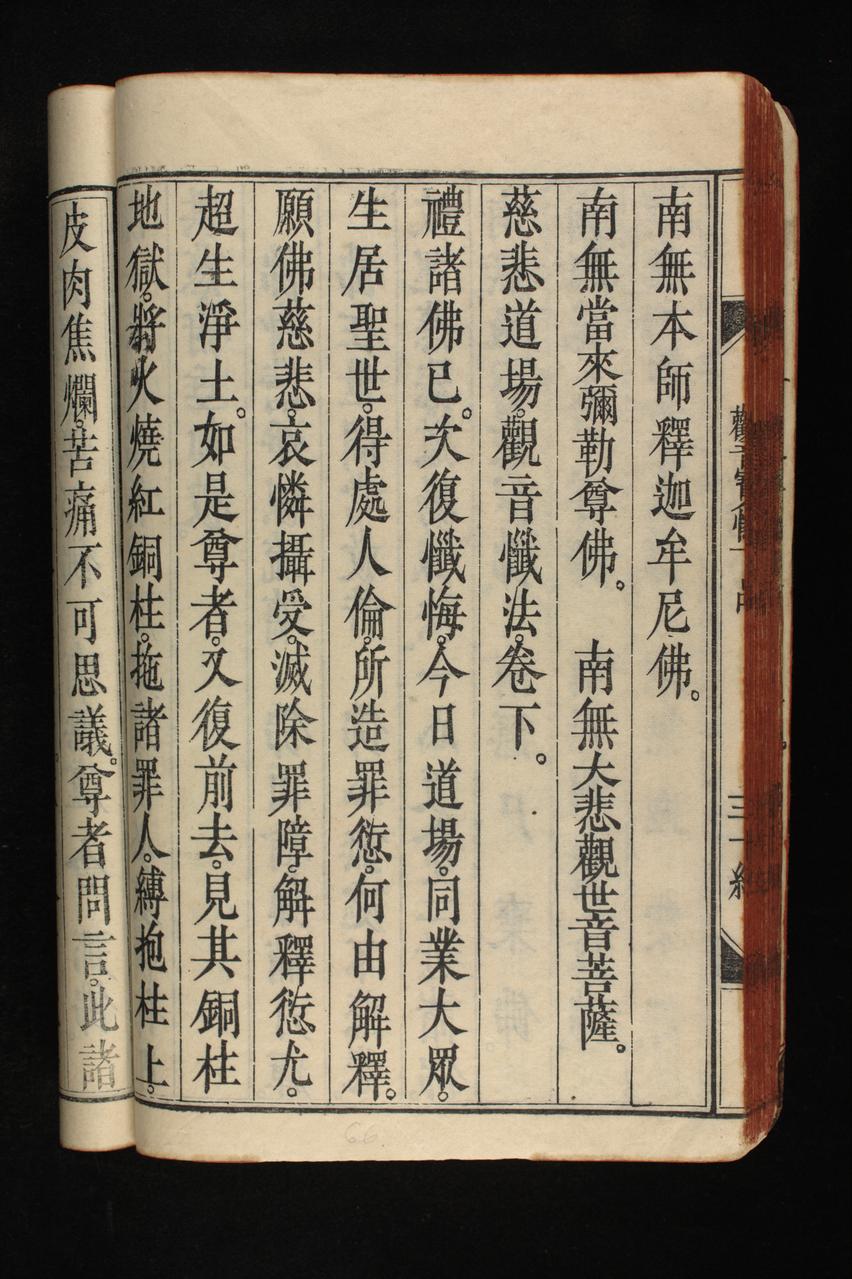 南無本師釋迦牟尼佛。
南無當來彌勒尊佛。　南無大悲觀世音菩薩。
慈悲道場。觀音懺法。卷下。
禮諸佛已。次復懺悔。今日道場。同業大眾。
生居聖世。得處人倫。所造罪愆。何由解釋。
願佛慈悲。哀憐攝受。滅除罪障。解釋愆尤。
超生淨土。如是尊者。又復前去。見其銅柱
地獄。將火燒紅銅柱。拖諸罪人。縛抱柱上。
皮肉焦爛。苦痛不可思議。尊者問言。此諸
66